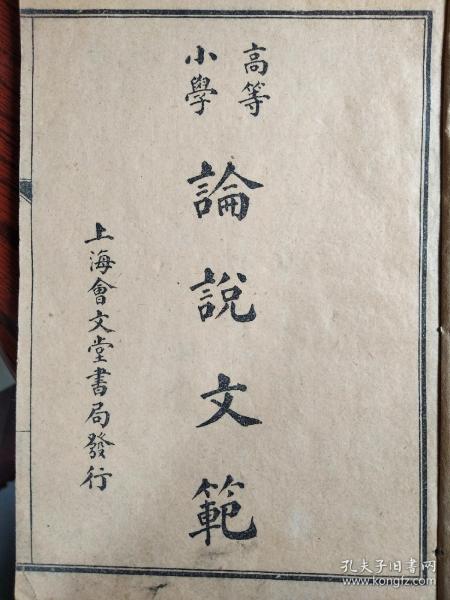 高等
小學
論說文範
上海會文堂書局發行
孔夫子旧书网
www.kongfz.com